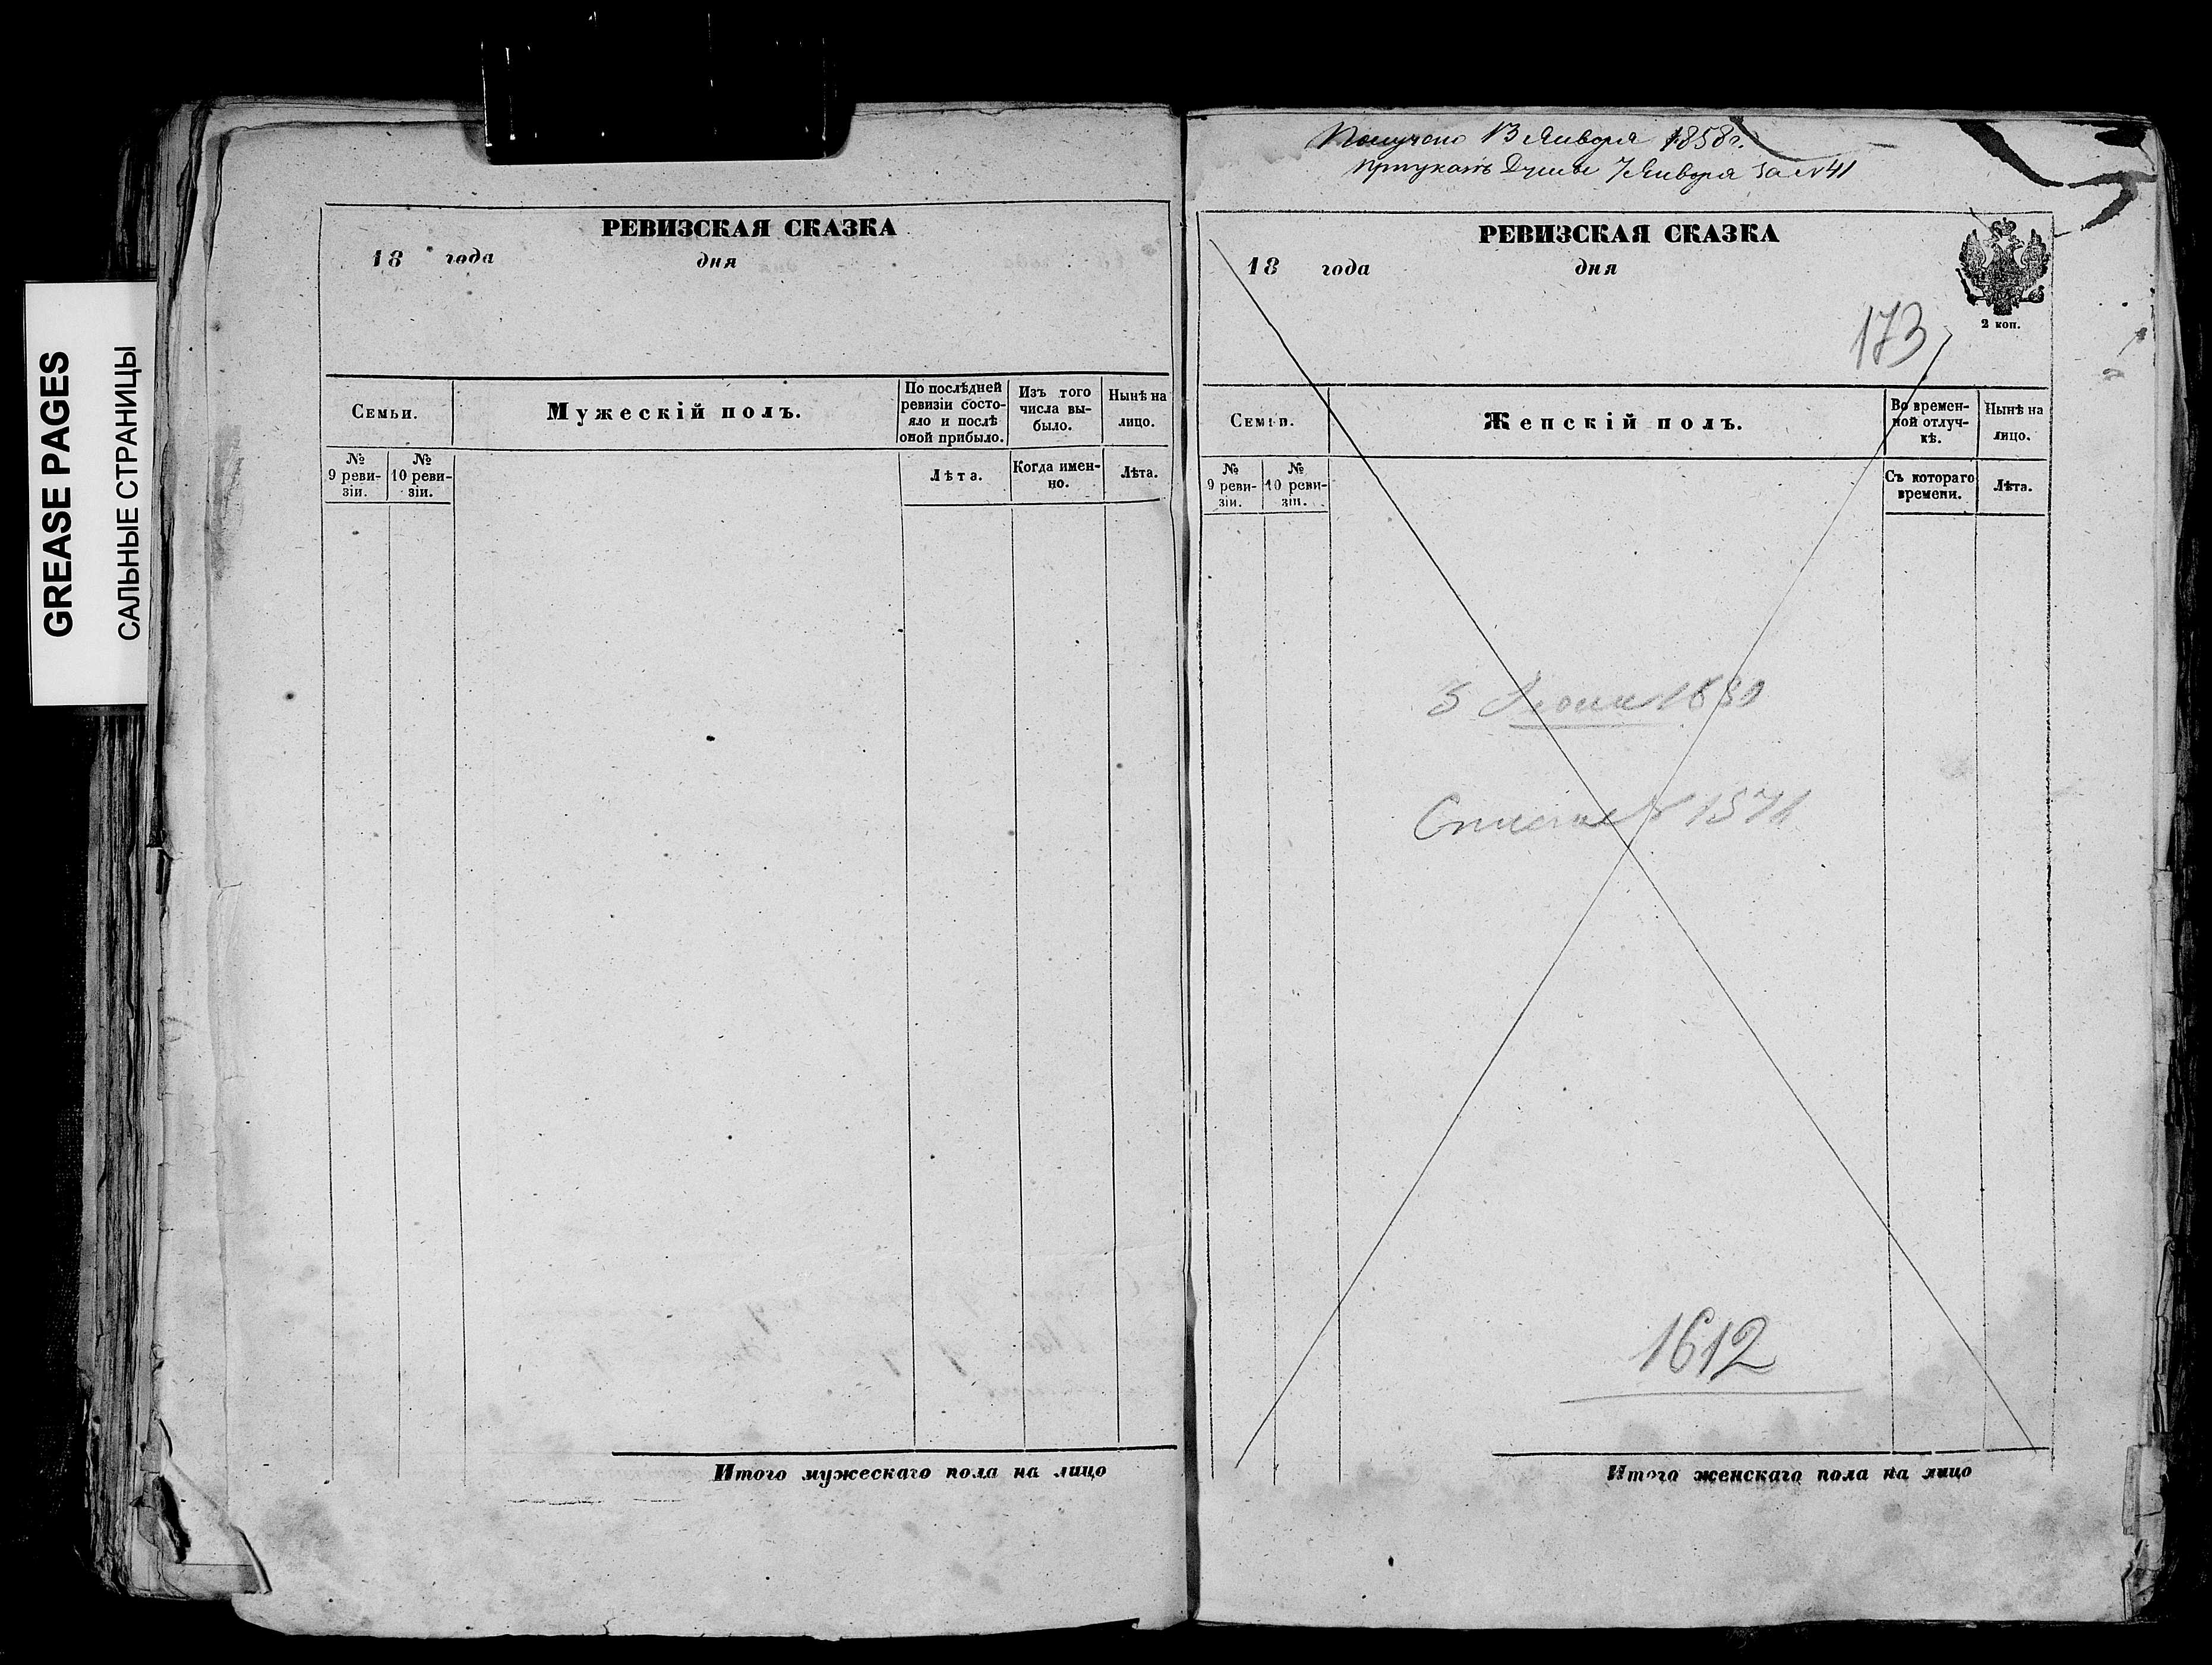 GREASE PAGES
САЛЬНЫЕ СТРАНИЦЫ
РЕВИЗСКАЯ СКАЗКА
18 года дня
Семьи.
Мужескій полъ.
По послѣдней ревизіи состо-
яло и послѣ оной прибыло.
Изъ того числа вы-
было.
Нынѣ на лицо.
№ 9 реви-
зіи.
№ 10 реви-
зіи.
Лѣта.
Когда имен-
но.
Лѣта.
Итого мужескаго пола на лицо
Получено 13 Января 1858 г.
Января за №41
РЕВИЗСКАЯ СКАЗКА
18 года дня
2 коп.
173
Семьи.
Женскій полъ.
Во времен-
ной отлуч-
кѣ.
Нынѣ на лицо.
№ 9 реви-
зіи.
№ 10 реви-
зіи.
Съ котораго времени.
Лѣта.
1612
Итого женскаго пола на лицо